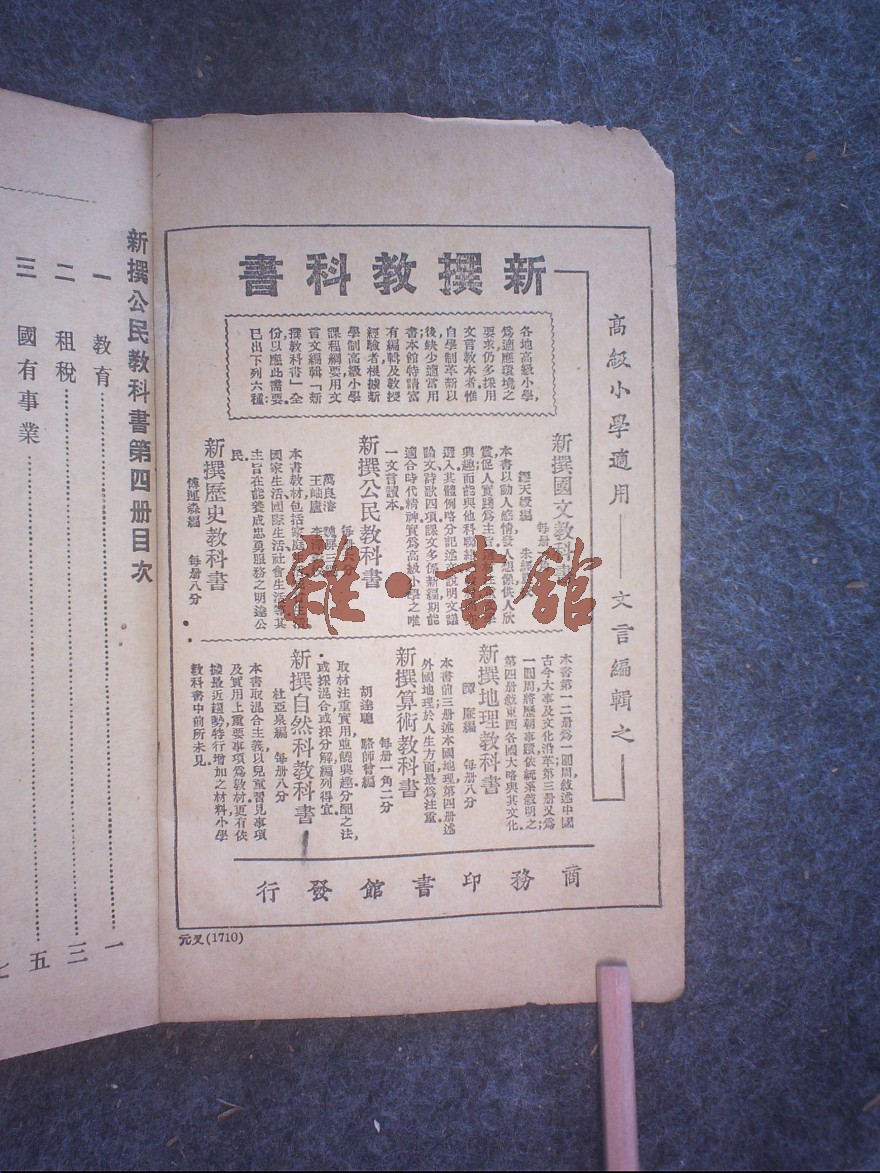 高級小學適用——文言編輯之
新撰教科書
各地高級小學，
爲適應環境之
要求仍多採用
文言教本者惟
自學制革新以
後缺少適當用
書本館特請富
有編輯及教授
經驗者根據新
學制高級小學
課程綱要用文
言文編輯「新
撰教科書」全
份以應此需要
已出下列六種：
新撰國文教科書
繆天綬編
每册
本書以動人感情發人想像供人欣
賞促人實踐爲主
興趣而能與他科聯絡
選入其體例略分記述
說明文議
論文詩歌四項課文多係新編期能
適合時代精神實爲高級小學之唯
一文言讀本。
新撰公民教科書
萬良濬
王岫廬
本書教材包括家庭生活
國家生活、國際生活、社會生活等其
主旨在能養成忠勇服務之明達公
民。
新撰歷史教科書
傅運森編　每册八分
本書第一二册爲一圓周，敘述中國
古今大事及文化沿革，第三册又爲
一圓周，將歷朝事蹟，依統系敘明之；
第四册敘東西各國大略與其文化。
新撰地理教科書
譚廉編　每册八分
本書前三册述本國地理，第四册述
外國地理，於人生方面最爲注重。
新撰算術教科書
每册一角二分
胡達聰　駱師曾編
取材注重實用並饒興趣，分配之法，
或採混合或採分解編列得宜。
新撰自然科教科書
杜亞泉編　每册八分
本書取混合主義以兒童習見事項
及實用上重要事項爲教材，更有依
據最近趨勢特行增加之材料，小學
教科書中前所未見。
商務印書館發行
元叉(1710)
新撰公民教科書第四册目次
一　教育……一
二　租稅……三
三　國有事業……五
七
雜·書館